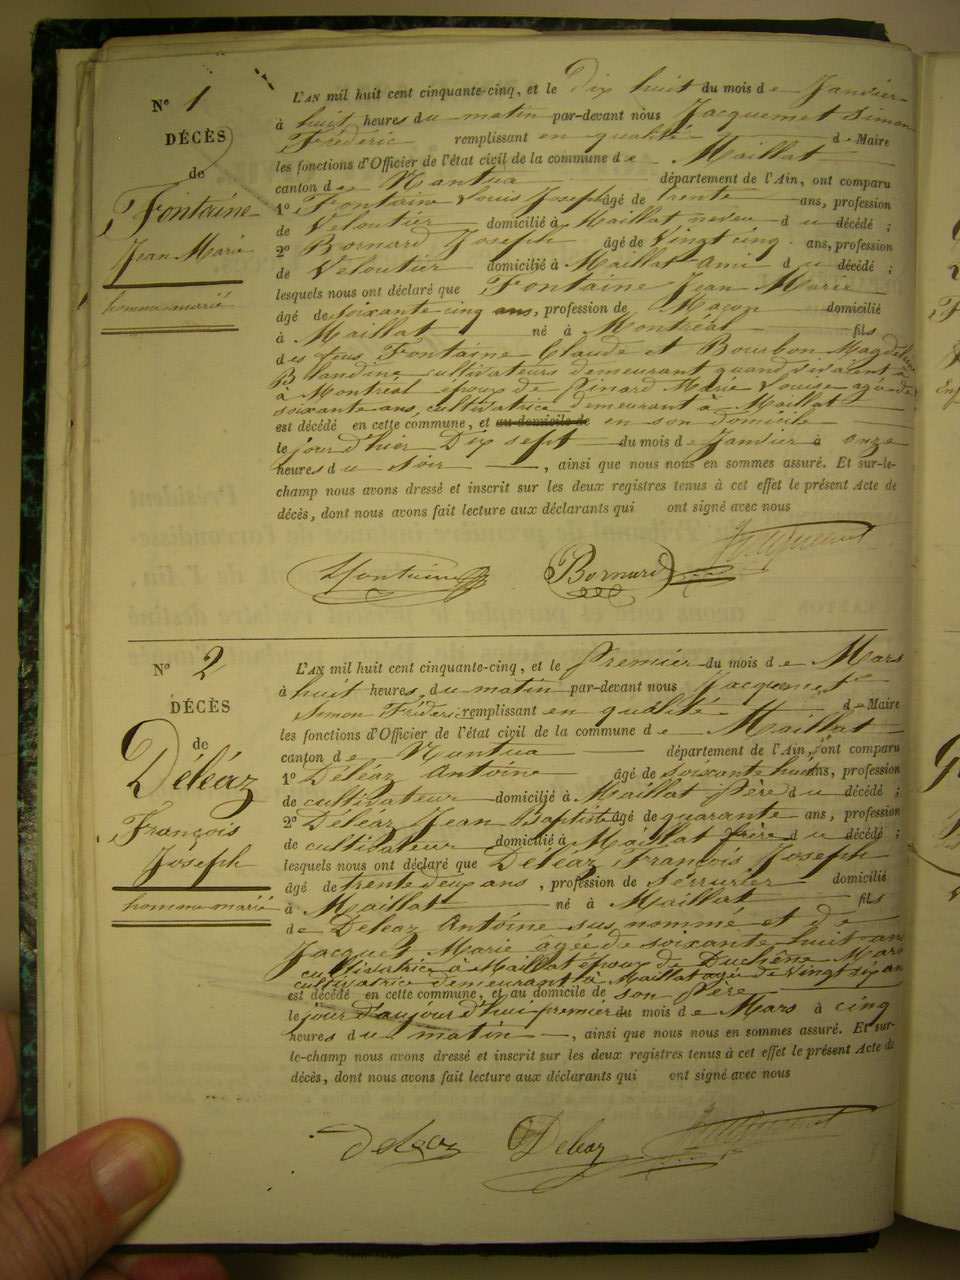 N° 1
DÉCÈS
de
Fontaine
Jean Marie
homme marié
L'AN mil huit cent cinquante-cinq, et le dix huit du mois de Janvier
à huit heures du matin par-devant nous Jacquemet Simon
Frédéric remplissant en qualité de Maire
les fonctions d'Officier de l'état civil de la commune de Maillat
canton de Nantua département de l'Ain, ont comparu
1° Fontaine Louis Joseph âgé de trente ans, profession
de Veloutier domicilié à Maillat neveu du décédé ;
2° Bornard Joseph âgé de Vingt cinq ans, profession
de Veloutier domicilié à Maillat Ami du décédé ;
lesquels nous ont déclaré que Fontaine Jean Marie
âgé de soixante cinq ans, profession de Maçon domicilié
à Maillat né à Montréal fils
des feus Fontaine Claude et Bourbon Magdeleine
Blandine cultivateurs demeurant quand vivaient
à Montréal époux de Pinard Marie Louise agée de
soixante ans, cultivatrice demeurant à Maillat
est décédé en cette commune, et au domicile de en son domicile
le jour d'hier Dix sept du mois de Janvier à onze
heures du soir , ainsi que nous nous en sommes assuré. Et sur-le-
champ nous avons dressé et inscrit sur les deux registres tenus à cet effet le présent Acte de
décès, dont nous avons fait lecture aux déclarants qui ont signé avec nous
Fontaine Bornard Jacquemet
N° 2
DÉCÈS
de
Déléaz
François
Joseph
homme marié
L'AN mil huit cent cinquante-cinq, et le Premier du mois de Mars
à huit heures du matin par-devant nous Jacquemet
Simon Frédéric remplissant en qualité de Maire
les fonctions d'Officier de l'état civil de la commune de Maillat
canton de Nantua département de l'Ain, ont comparu
1° Déléaz Antoine âgé de soixante huit ans, profession
de cultivateur domicilié à Maillat Père du décédé ;
2° Déléaz Jean Baptiste âgé de quarante ans, profession
de cultivateur domicilié à Maillat frère du décédé ;
lesquels nous ont déclaré que Déléaz François Joseph
âgé de trente deux ans , profession de Serrurier domicilié
à Maillat né à Maillat fils
de Déléaz Antoine sus nommé et de
Jacquet Marie agée de soixante huit ans
cultivatrice à Maillat époux de Duchêne Marie
cultivatrice demeurant à Maillat agée de Vingt six ans
est décédé en cette commune, et au domicile de son Père
le jour d'aujourd'hui premier du mois de Mars à cinq
heures du matin , ainsi que nous nous en sommes assuré. Et sur-
le-champ nous avons dressé et inscrit sur les deux registres tenus à cet effet le présent Acte de
décès, dont nous avons fait lecture aux déclarants qui ont signé avec nous
Deleaz Deleaz Jacquemet